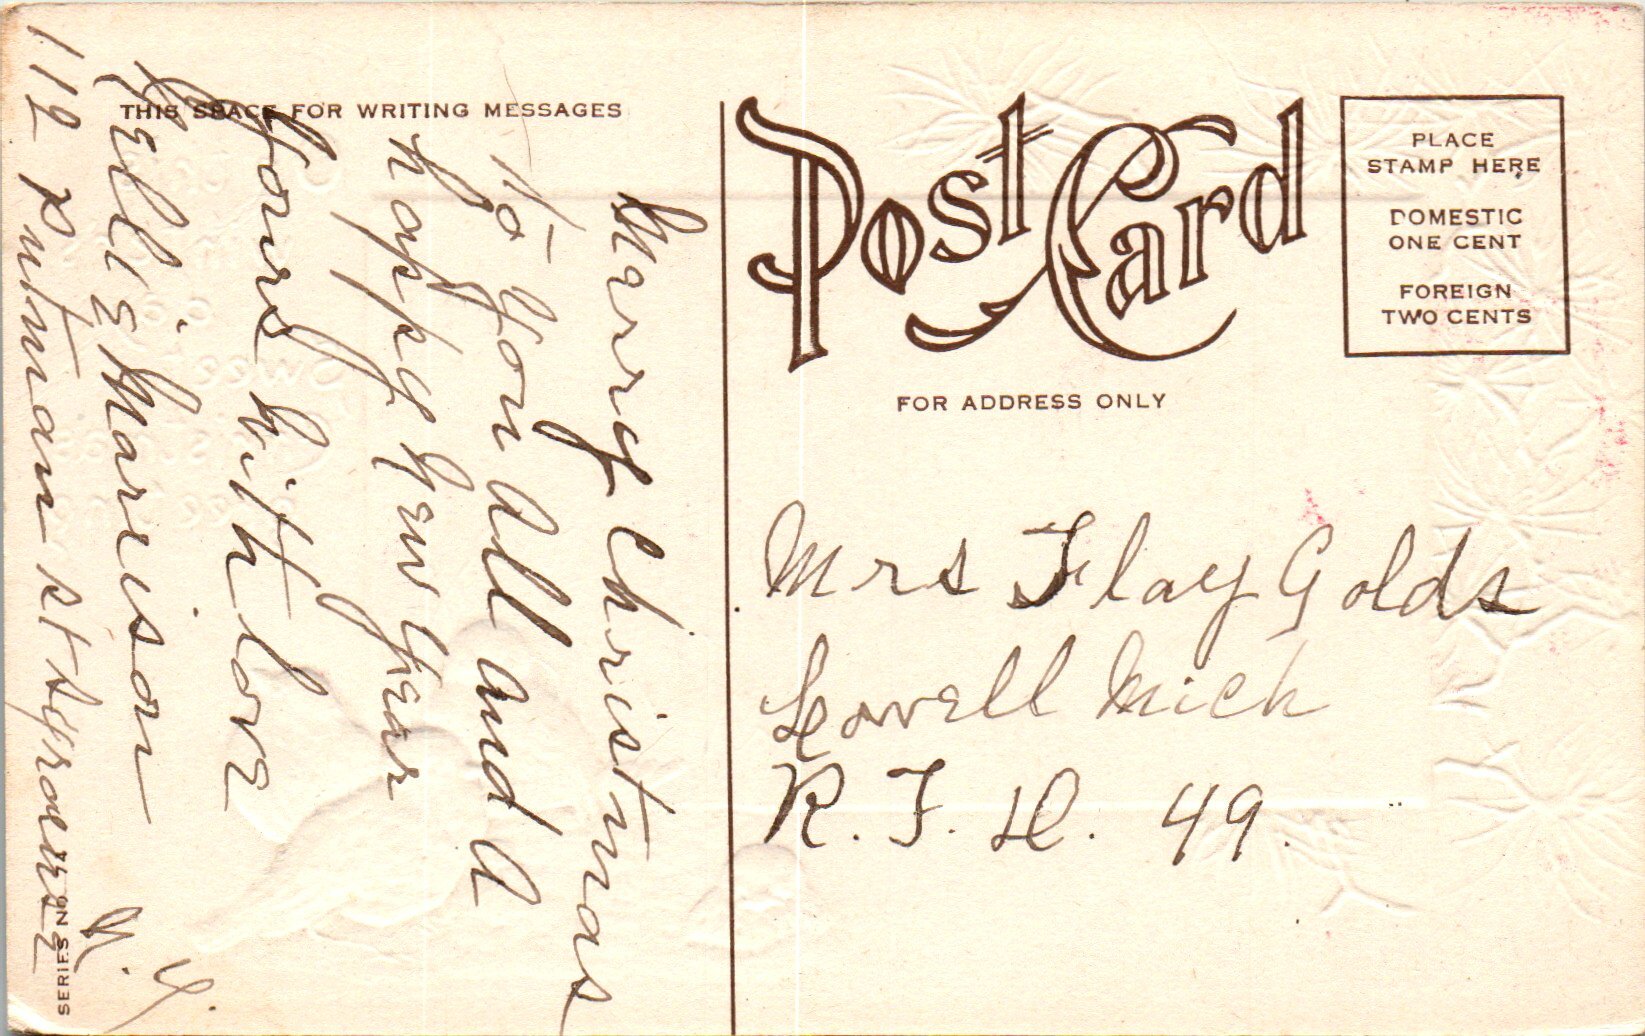 THIS SPACE FOR WRITING MESSAGES
Post Card
PLACE
STAMP HERE
DOMESTIC
ONE CENT
FOREIGN
TWO CENTS
FOR ADDRESS ONLY
Merry Christmas
to You All and A
happy New Year
Yours with love
Nellie Marrison
112 Putnam st Syracuse
N. Y.
Mrs Flay Golds
Lowell Mich
R. F. D. 49.
SERIES NO.